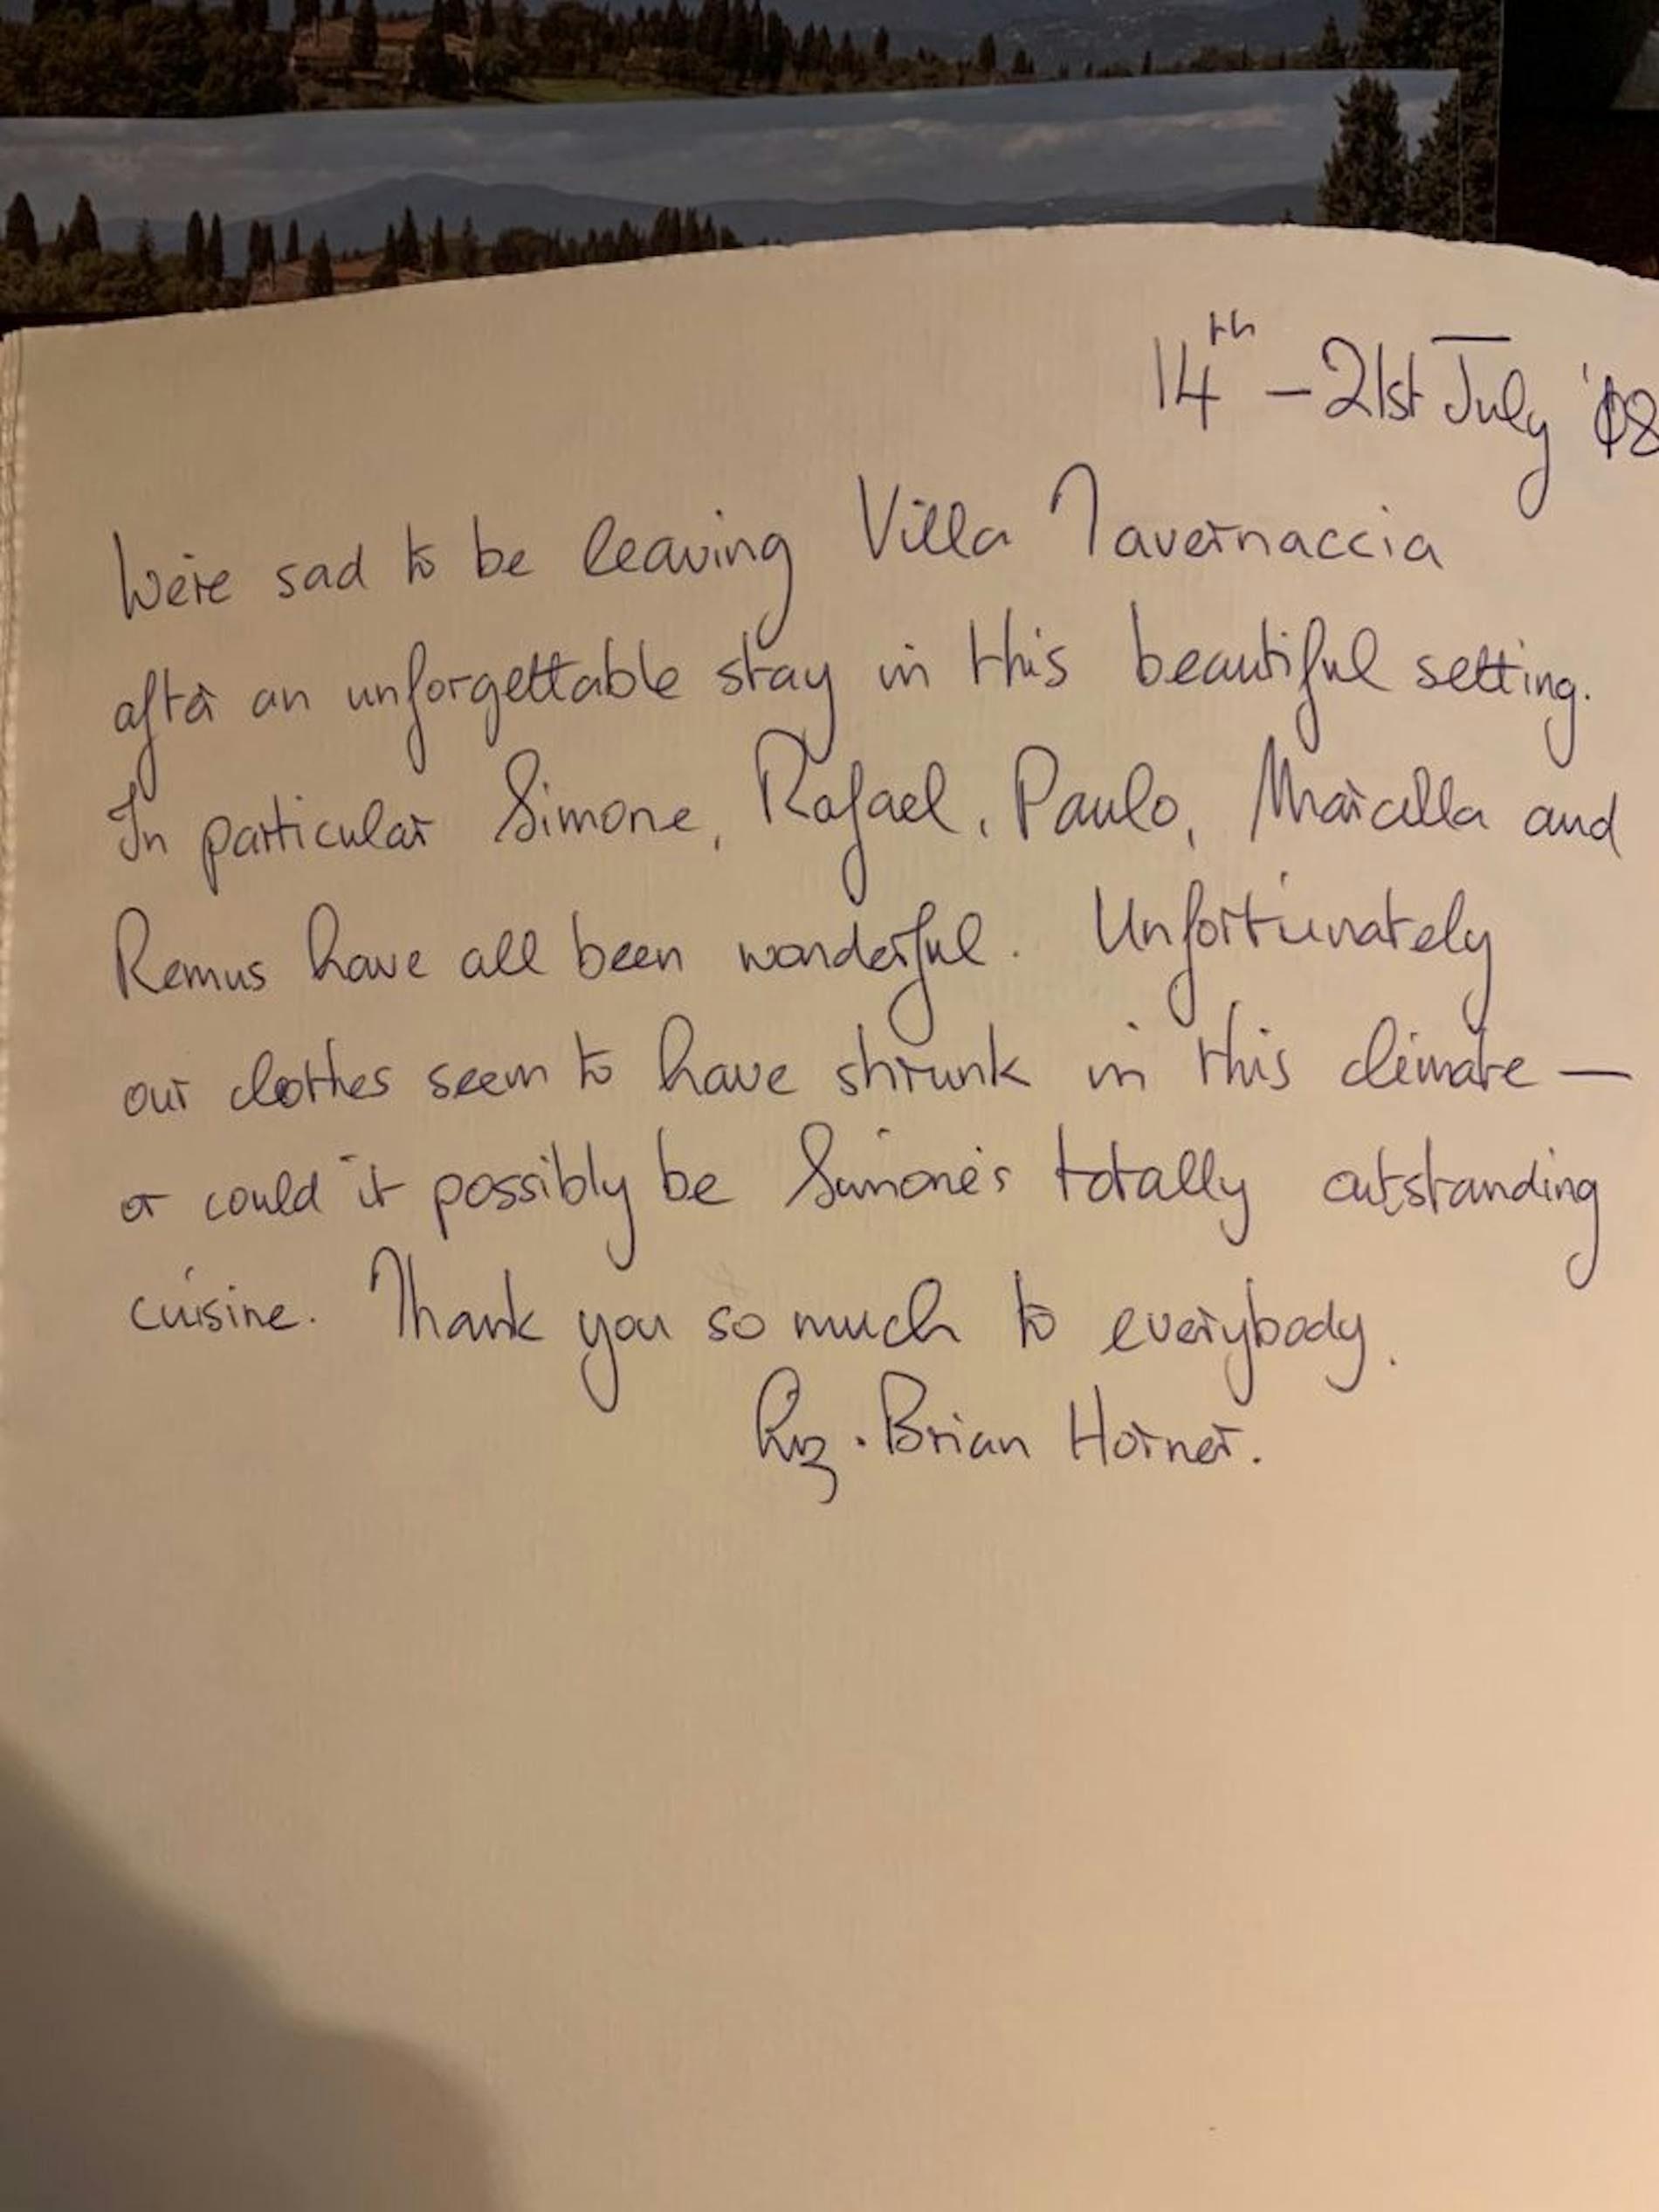 14th – 21st July '08
We're sad to be leaving Villa Tavernaccia
after an unforgettable stay in this beautiful setting.
In particular Simone, Rafael, Paulo, Marcella and
Remus have all been wonderful. Unfortunately
our clothes seem to have shrunk in this climate –
or could it possibly be Simone's totally outstanding
cuisine. Thank you so much to everybody.
Liz. Brian Horner.